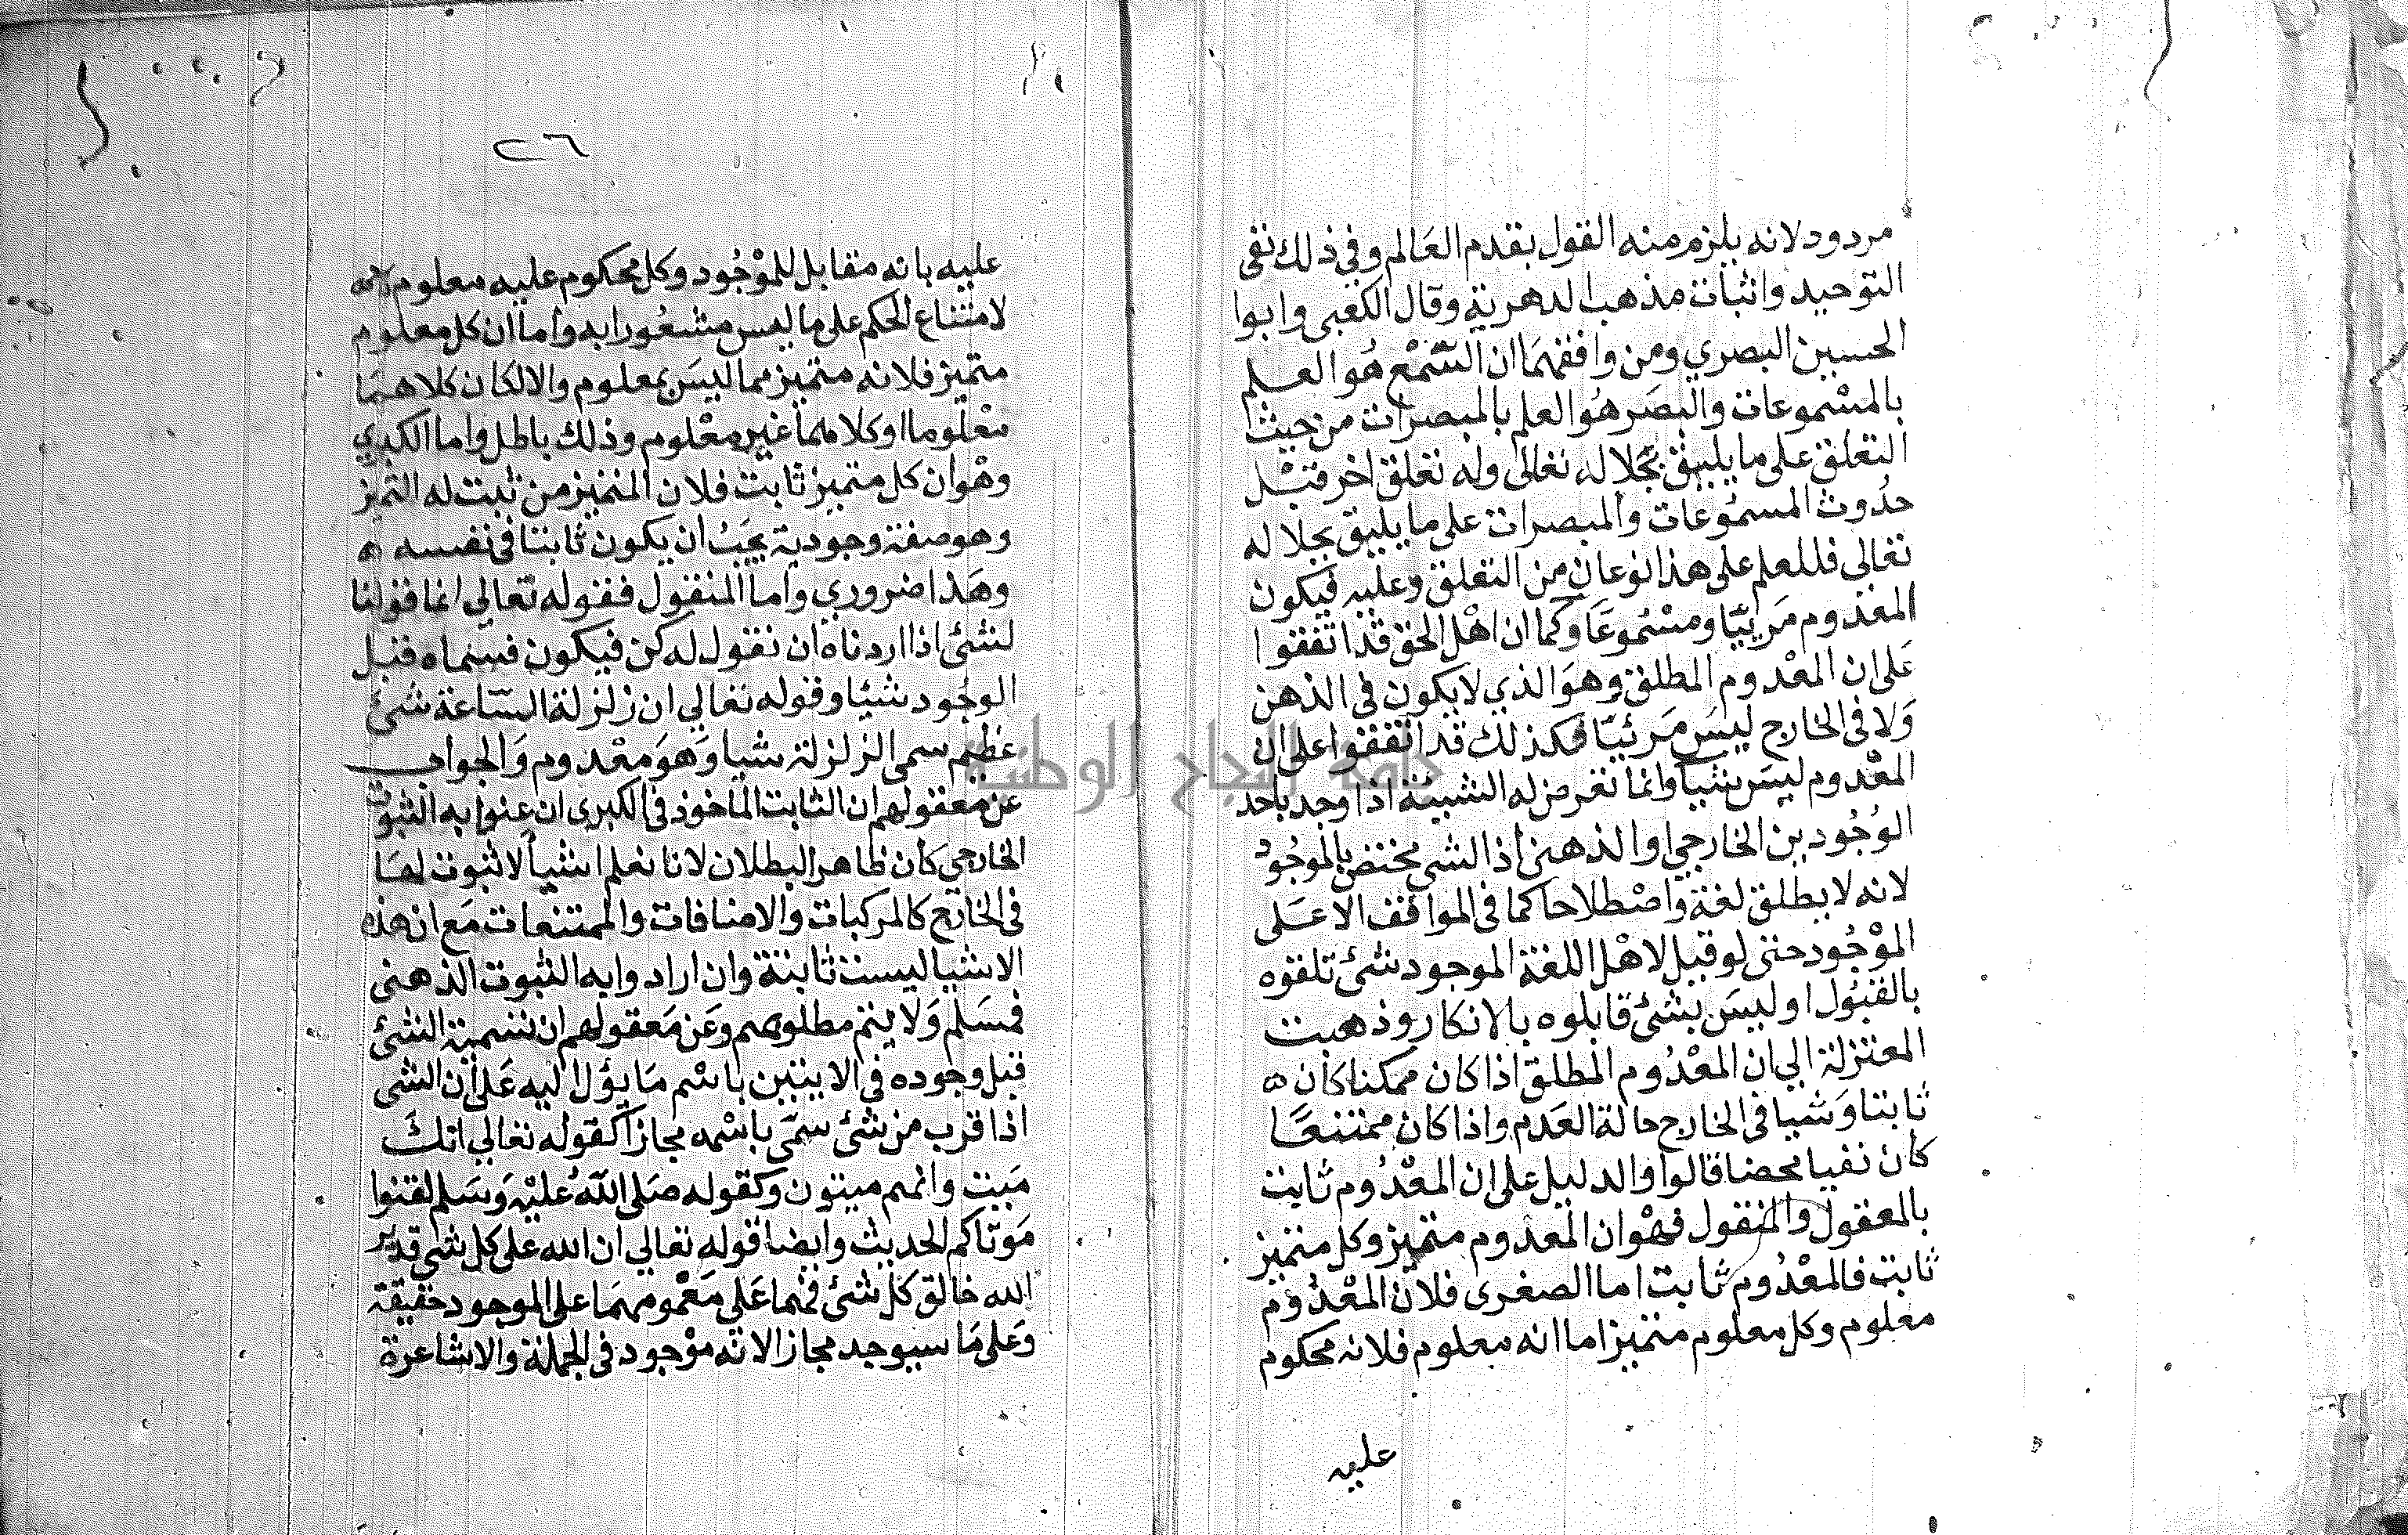 مردود لانه يلزم منه القول بقدم العَالم وفي ذلك نفى
التوحيد واثبات مذهب الدهرية وقال الكعبى وابوا
الحسين البصري ومن وافقهمَا ان السَّمْع هُو العلم
بالمسْموعات والبصَر هُو العلم بالمبصرات من حيث
التعلق على ما يليق بجَلاله تعالى وله تعلق اخر قبْل
حدُوث المسمُوعات والمبصرات على ما يليق بجلاله
تعالي فللعلم على هذا نوعان من التعلق وعليه فيكون
المعدوم مَرئيّا ومسْمُوعًا وكما ان اهْل الحق قد اتفقوا
عَلى ان المعْدوم المطلق وهوَ الذي لا يكون فى الذهن
وَلا فى الخارج ليسَ مَرئيّا فكذلك قد اتفقوا على ان
المعْدوم ليسَ بشيأ وانما تعرض له الشيئية اذا وجد باحد
الوُجُودين الخارجي والذهنى اذ الشى مختص بالموجُود
لانه لا يطلق لغة واصْطلاحا كما فى المواقف الا عَلى
الموْجُود حتى لو قيل لاهْل اللغة الموجود شئ تلقوه
بالقبُول او ليسَ بشئ قابلوه بالانكار وذهبت
المعتزلة الي ان المعْدُوم المطلق اذا كان ممكنا كان
ثابتا وَشيا فى الخارج حالة العَدم واذا كان ممتنعًا
كان نفيا محضا قالوا والدليل على ان المعْدُوم ثابت
بالمعقول والمنقول فهْو ان المعْدوم متميز وكل متميز
ثابت فالمعْدُوم ثابت اما الصغرى فلان المعْدُوم
معلوم وكل معلوم متميز اما انه معلوم فلانه محكوم
عليه
٢٦
عليه بانه مقابل للموْجُود وكل محكوم عليه معلوم
لامتناع الحكم على ما ليس مشعُورا به واما ان كل معلوم
متميز فلانه متميز مما ليسَ بمعلوم والا لكان كلاهمَا
معْلوما او كلاهما غير معْلوم وذلك باطل واما الكبري
وهْو ان كل متميز ثابت فلان المتميز من ثبت له التميز
وهو صفة وجودية يجَبُ ان يكون ثابتا فى نفسه
وهَذا ضروري واما المنقول فقوله تعالي انما قولنا
لشئ اذا اردناه ان نقول له كن فيكون فسماه قبل
الوجُود شيئا وقوله تعالي ان زلزلة السَّاعة شئ
عظيم سمى الزلزلة شيا وَهوَ معْدوم وَالجواب
عن معقولهم ان الثابت الماخوذ فى الكبرى ان عنوا به الثبوت
الخارجي كان ظاهر البطلان لانا نعلم اشيأ لا ثبوت لهَا
فى الخارج كالمركبات والاضافات والممتنعات مَع ان هذه
الاشيا ليست ثابتة وان ارادوا به الثبوت الذهنى
فمسَلم وَلا يتم مطلوبهم وعَن مَعقولهم ان تسمية الشئ
قبل وجوده فى الايتين باسْم مَا يؤل اليه عَلى ان الشى
اذا قرب من شئ سمّى باسْمه مجازا كقوله تعالي انكَ
مَيت وانهم ميتون وكقوله صَلى اللهُ عليْه وَسَلم لقنوا
مَوتاكم الحديث وايضا قوله تعالي ان الله على كل شى قدير
الله خالق كل شئ فهما عَلي عمومهمَا على الموجود حقيقة
وَعلى مَا سيوجد مجازا لانه موْجود فى الجملة والاشاعرة
جامعة النجاح الوطنية